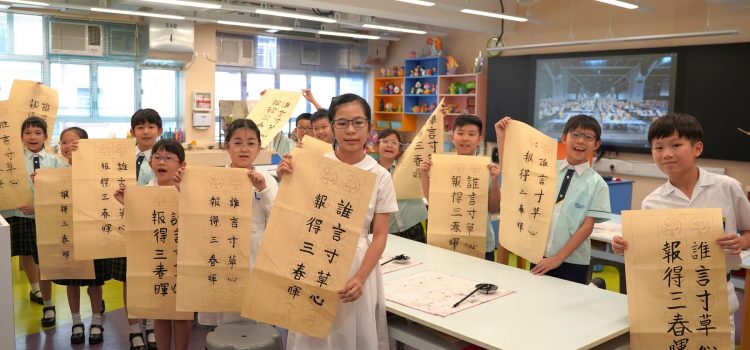 報得三春暉
誰言寸草心
報得三春暉
誰言寸草心
報得三春暉
誰言寸草心
報得三春暉
誰言寸草心
報得三春暉
誰言寸草心
報得三春暉
誰言寸草心
報得三春暉
誰言寸草心
報得三春暉